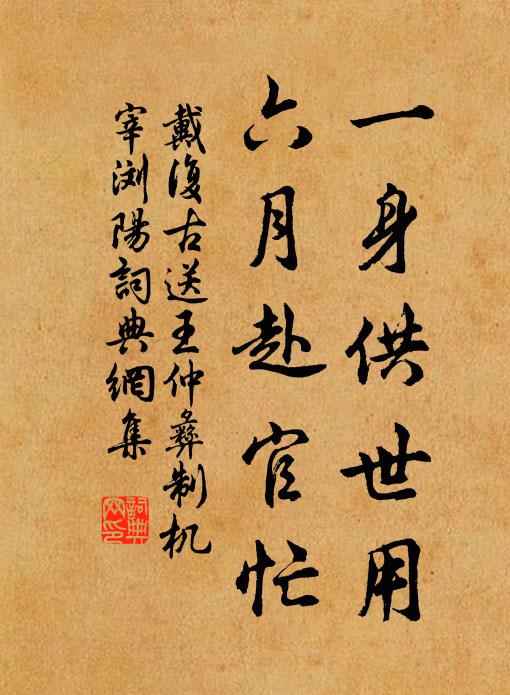 一身供世用
六月赴官忙
戴復古送王仲彝制机
宰浏陽詞典網集
詞典
网印